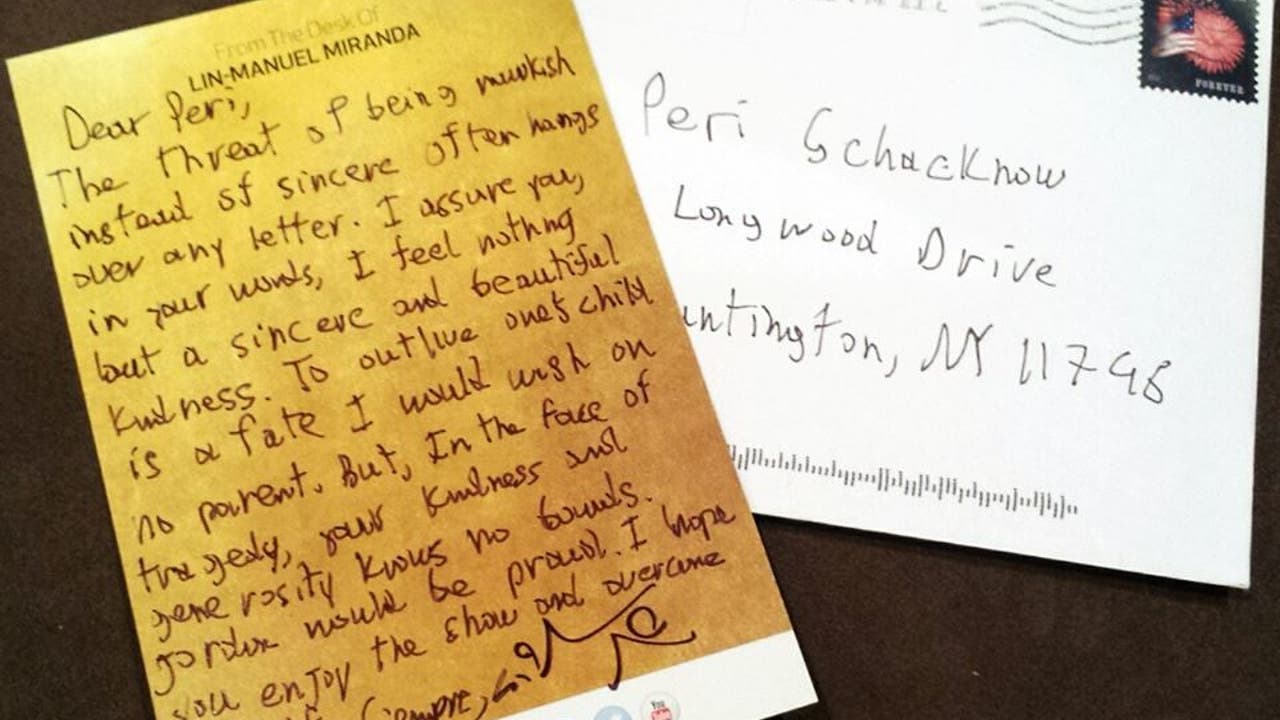 From The Desk Of
LIN-MANUEL MIRANDA
Dear Peri,
The threat of being mawkish
instead of sincere often hangs
over any letter. I assure you,
in your words, I feel nothing
but a sincere and beautiful
kindness. To outlive one's child
is a fate I would wish on
no parent. But, In the face of
tragedy, your kindness and
generosity knows no bounds.
Jordan would be proud. I hope
you enjoy the show and overcome
Siempre,
Peri Schacknow
Longwood Drive
untington, NY 11746
FOREVER
You